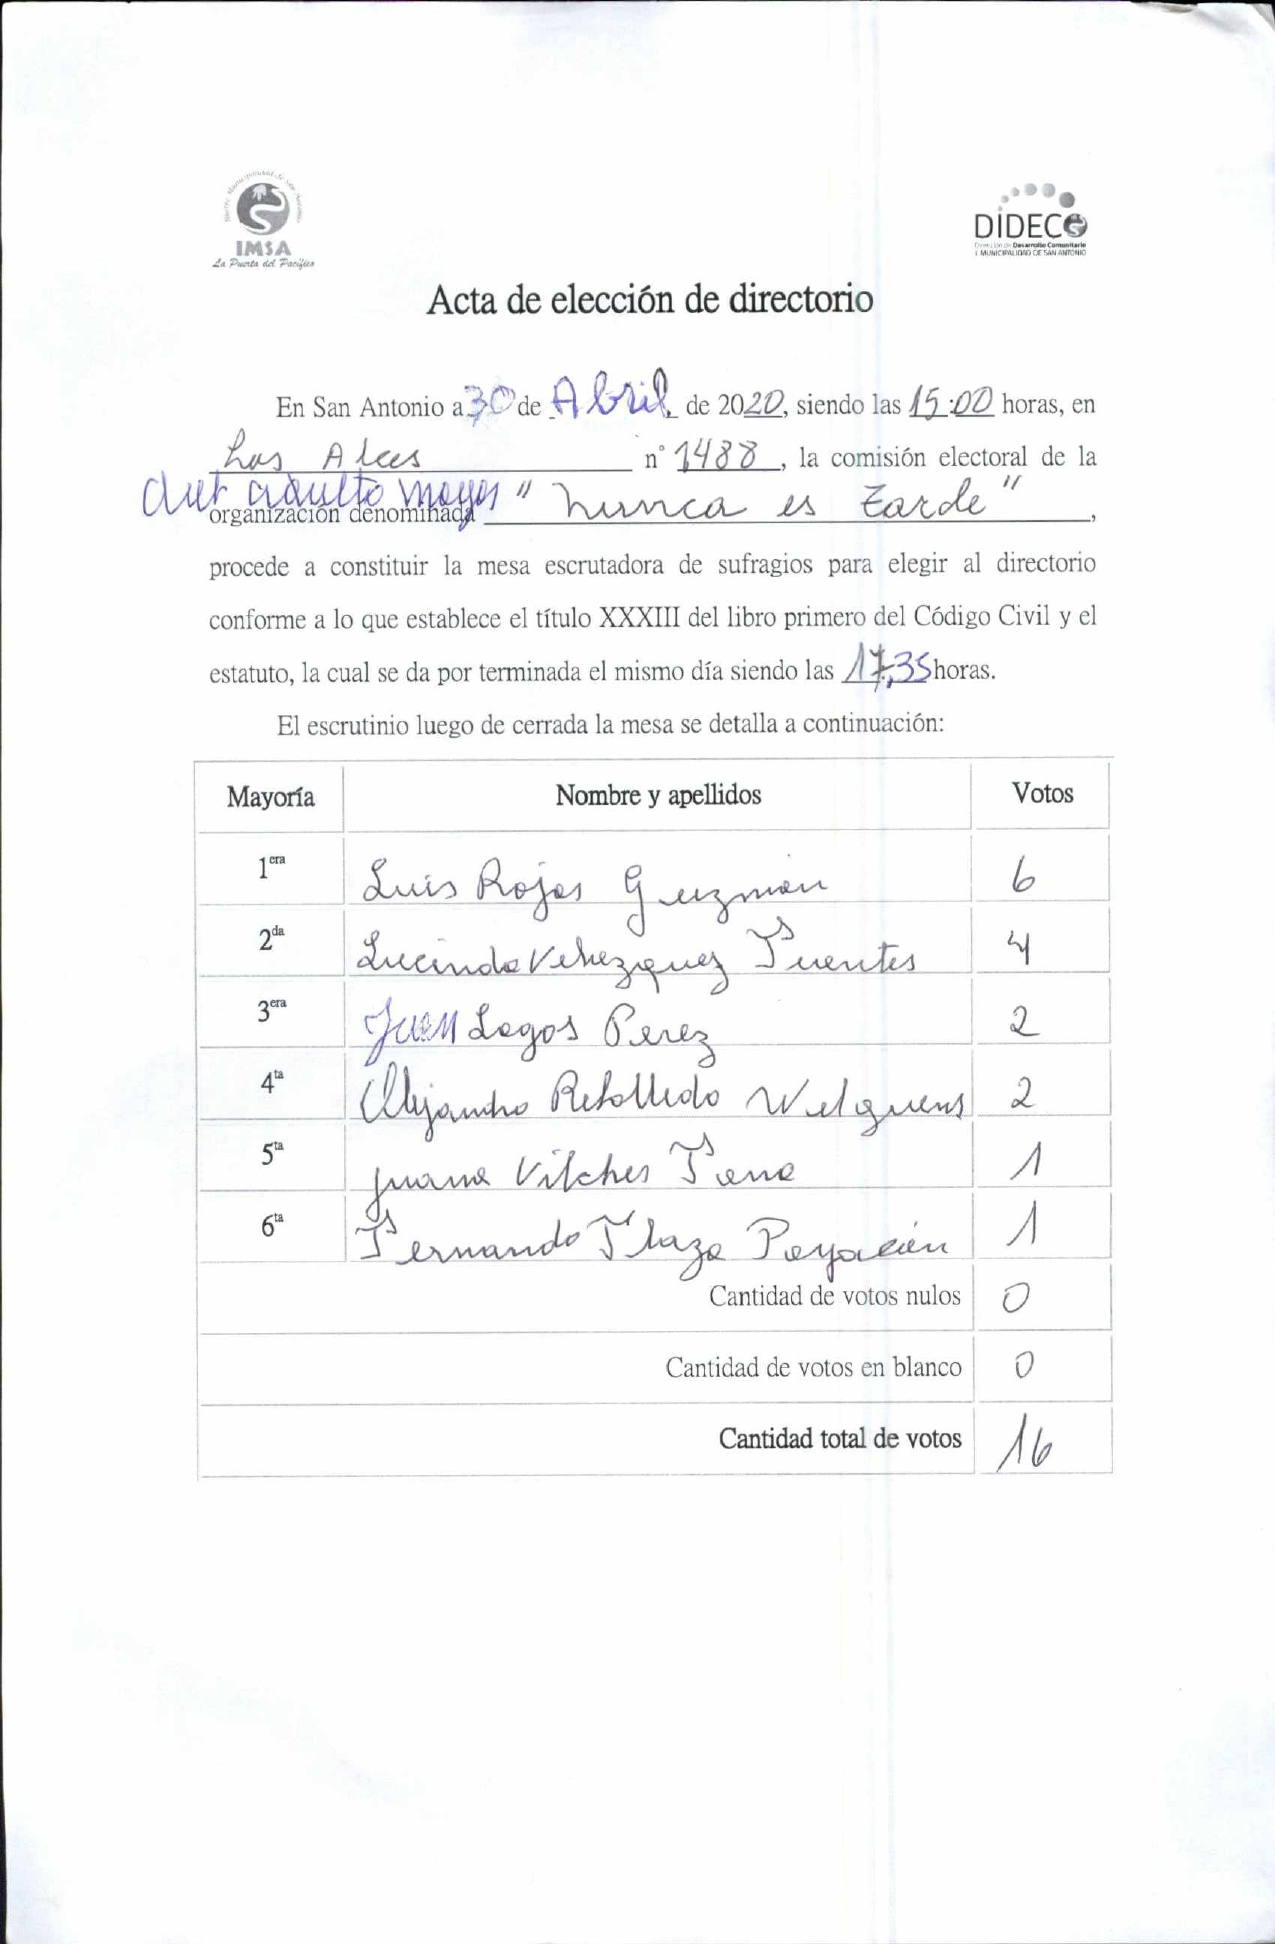 Ilustre Municipalidad de San Antonio
IMSA
La Puerta del Pacífico
DIDECO
Dirección de Desarrollo Comunitario
I. MUNICIPALIDAD DE SAN ANTONIO
Acta de elección de directorio
En San Antonio a 30 de Abril de 2020, siendo las 15:00 horas, en
Los n° 1488, la comisión electoral de la
organización denominada Club adulto mayor "Nunca es Tarde",
procede a constituir la mesa escrutadora de sufragios para elegir al directorio
conforme a lo que establece el título XXXIII del libro primero del Código Civil y el
estatuto, la cual se da por terminada el mismo día siendo las 17,35 horas.
El escrutinio luego de cerrada la mesa se detalla a continuación:
Mayoría Nombre y apellidos Votos
1era Luis Rojas Guzman 6
2da Lucinda Fuentes 4
3era Juan Lagos Perez 2
4ta Alejandro 2
5ta Juana Vilches 1
6ta Fernando Plaza 1
Cantidad de votos nulos 0
Cantidad de votos en blanco 0
Cantidad total de votos 16